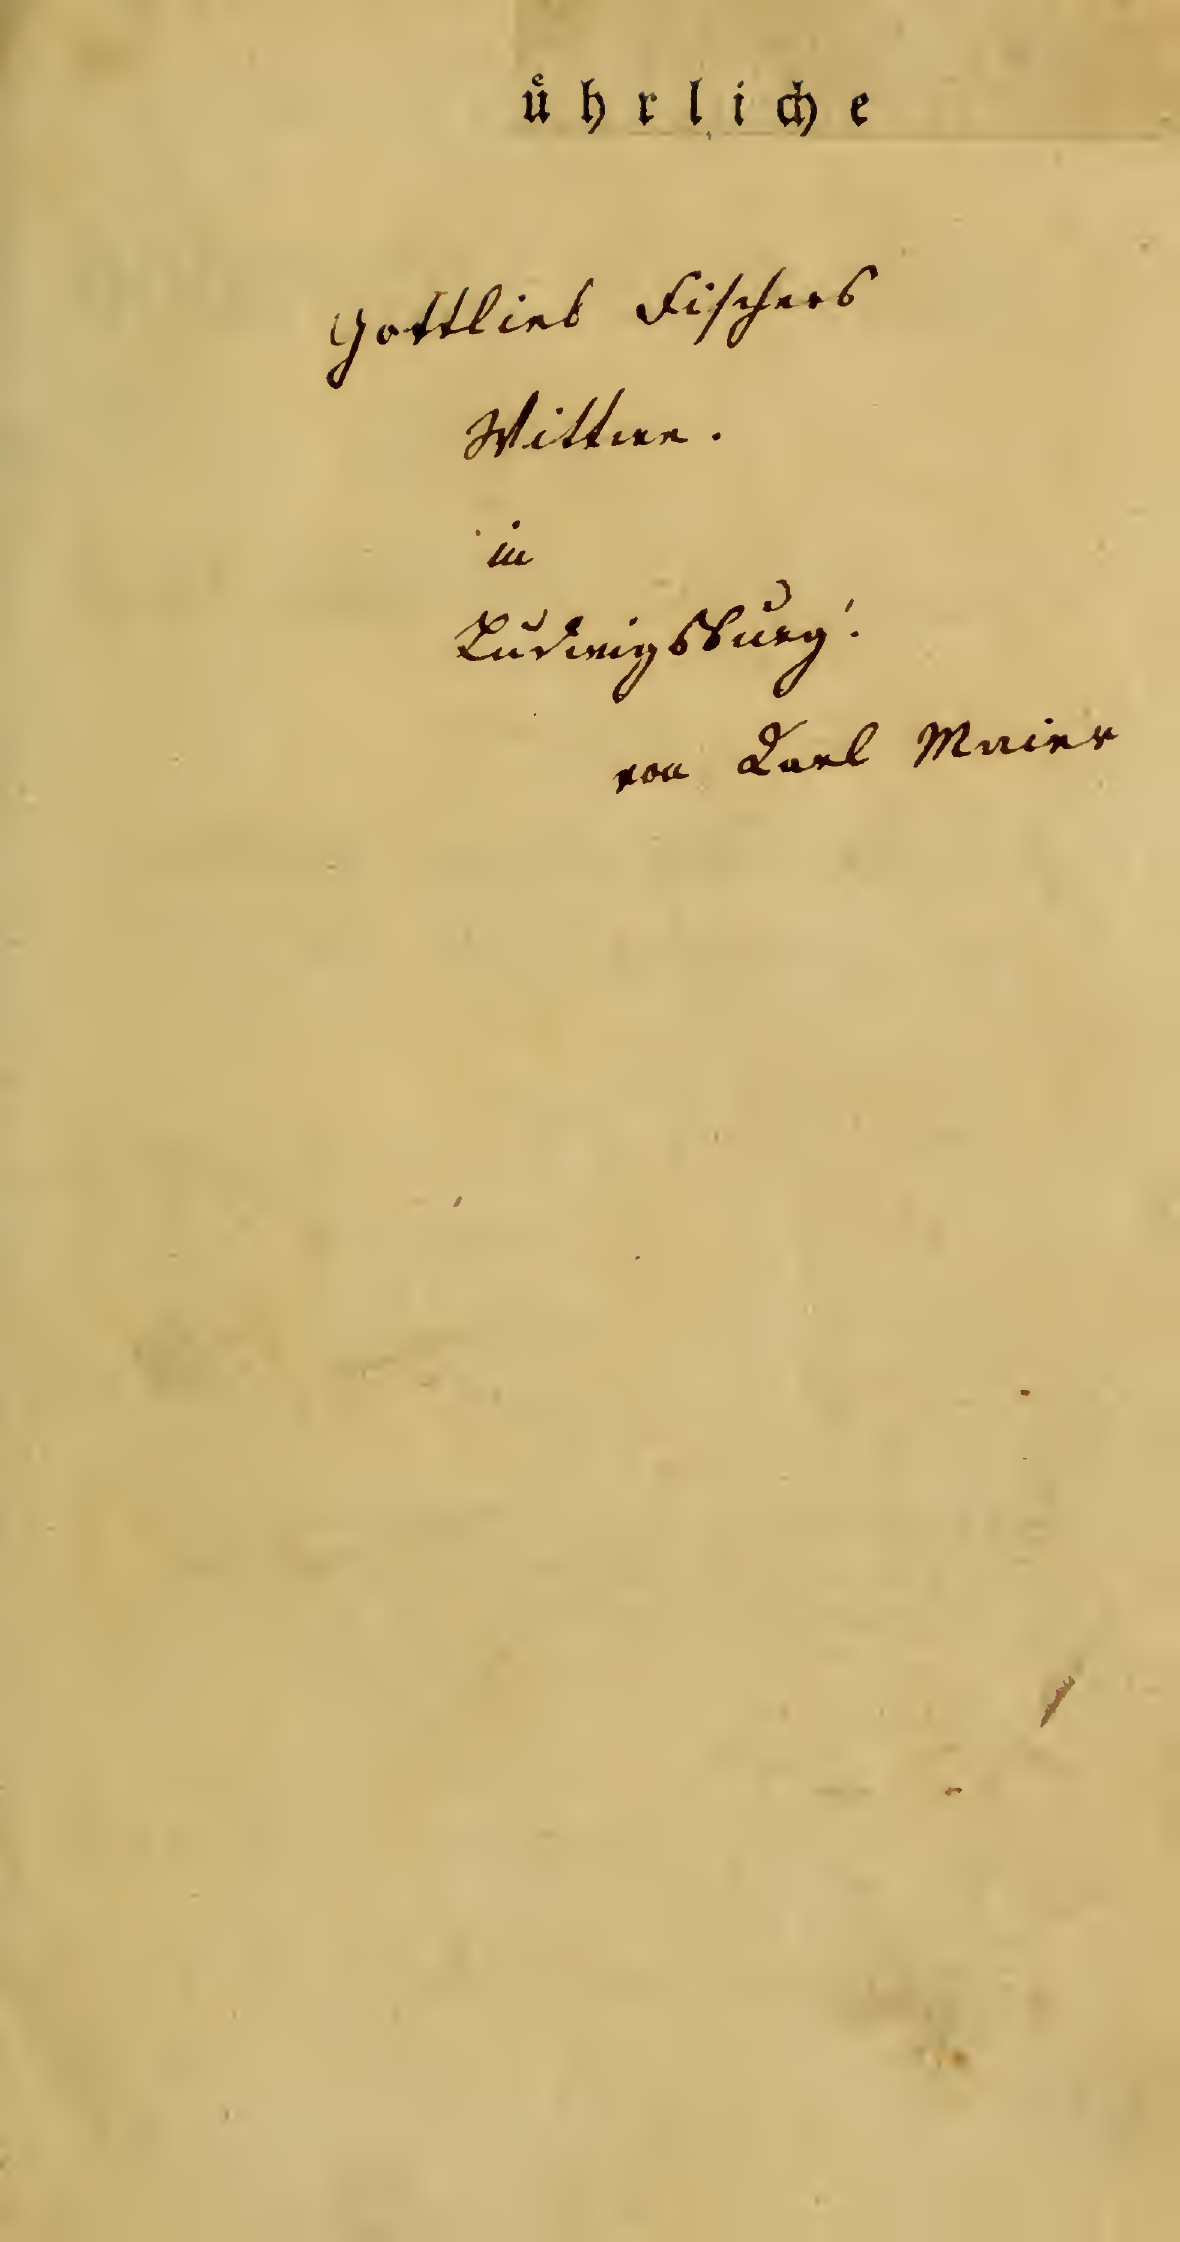 uͤhrliche
Gottlieb Fischers
Wittwe.
in
Ludwigsburg!
von Karl Maier